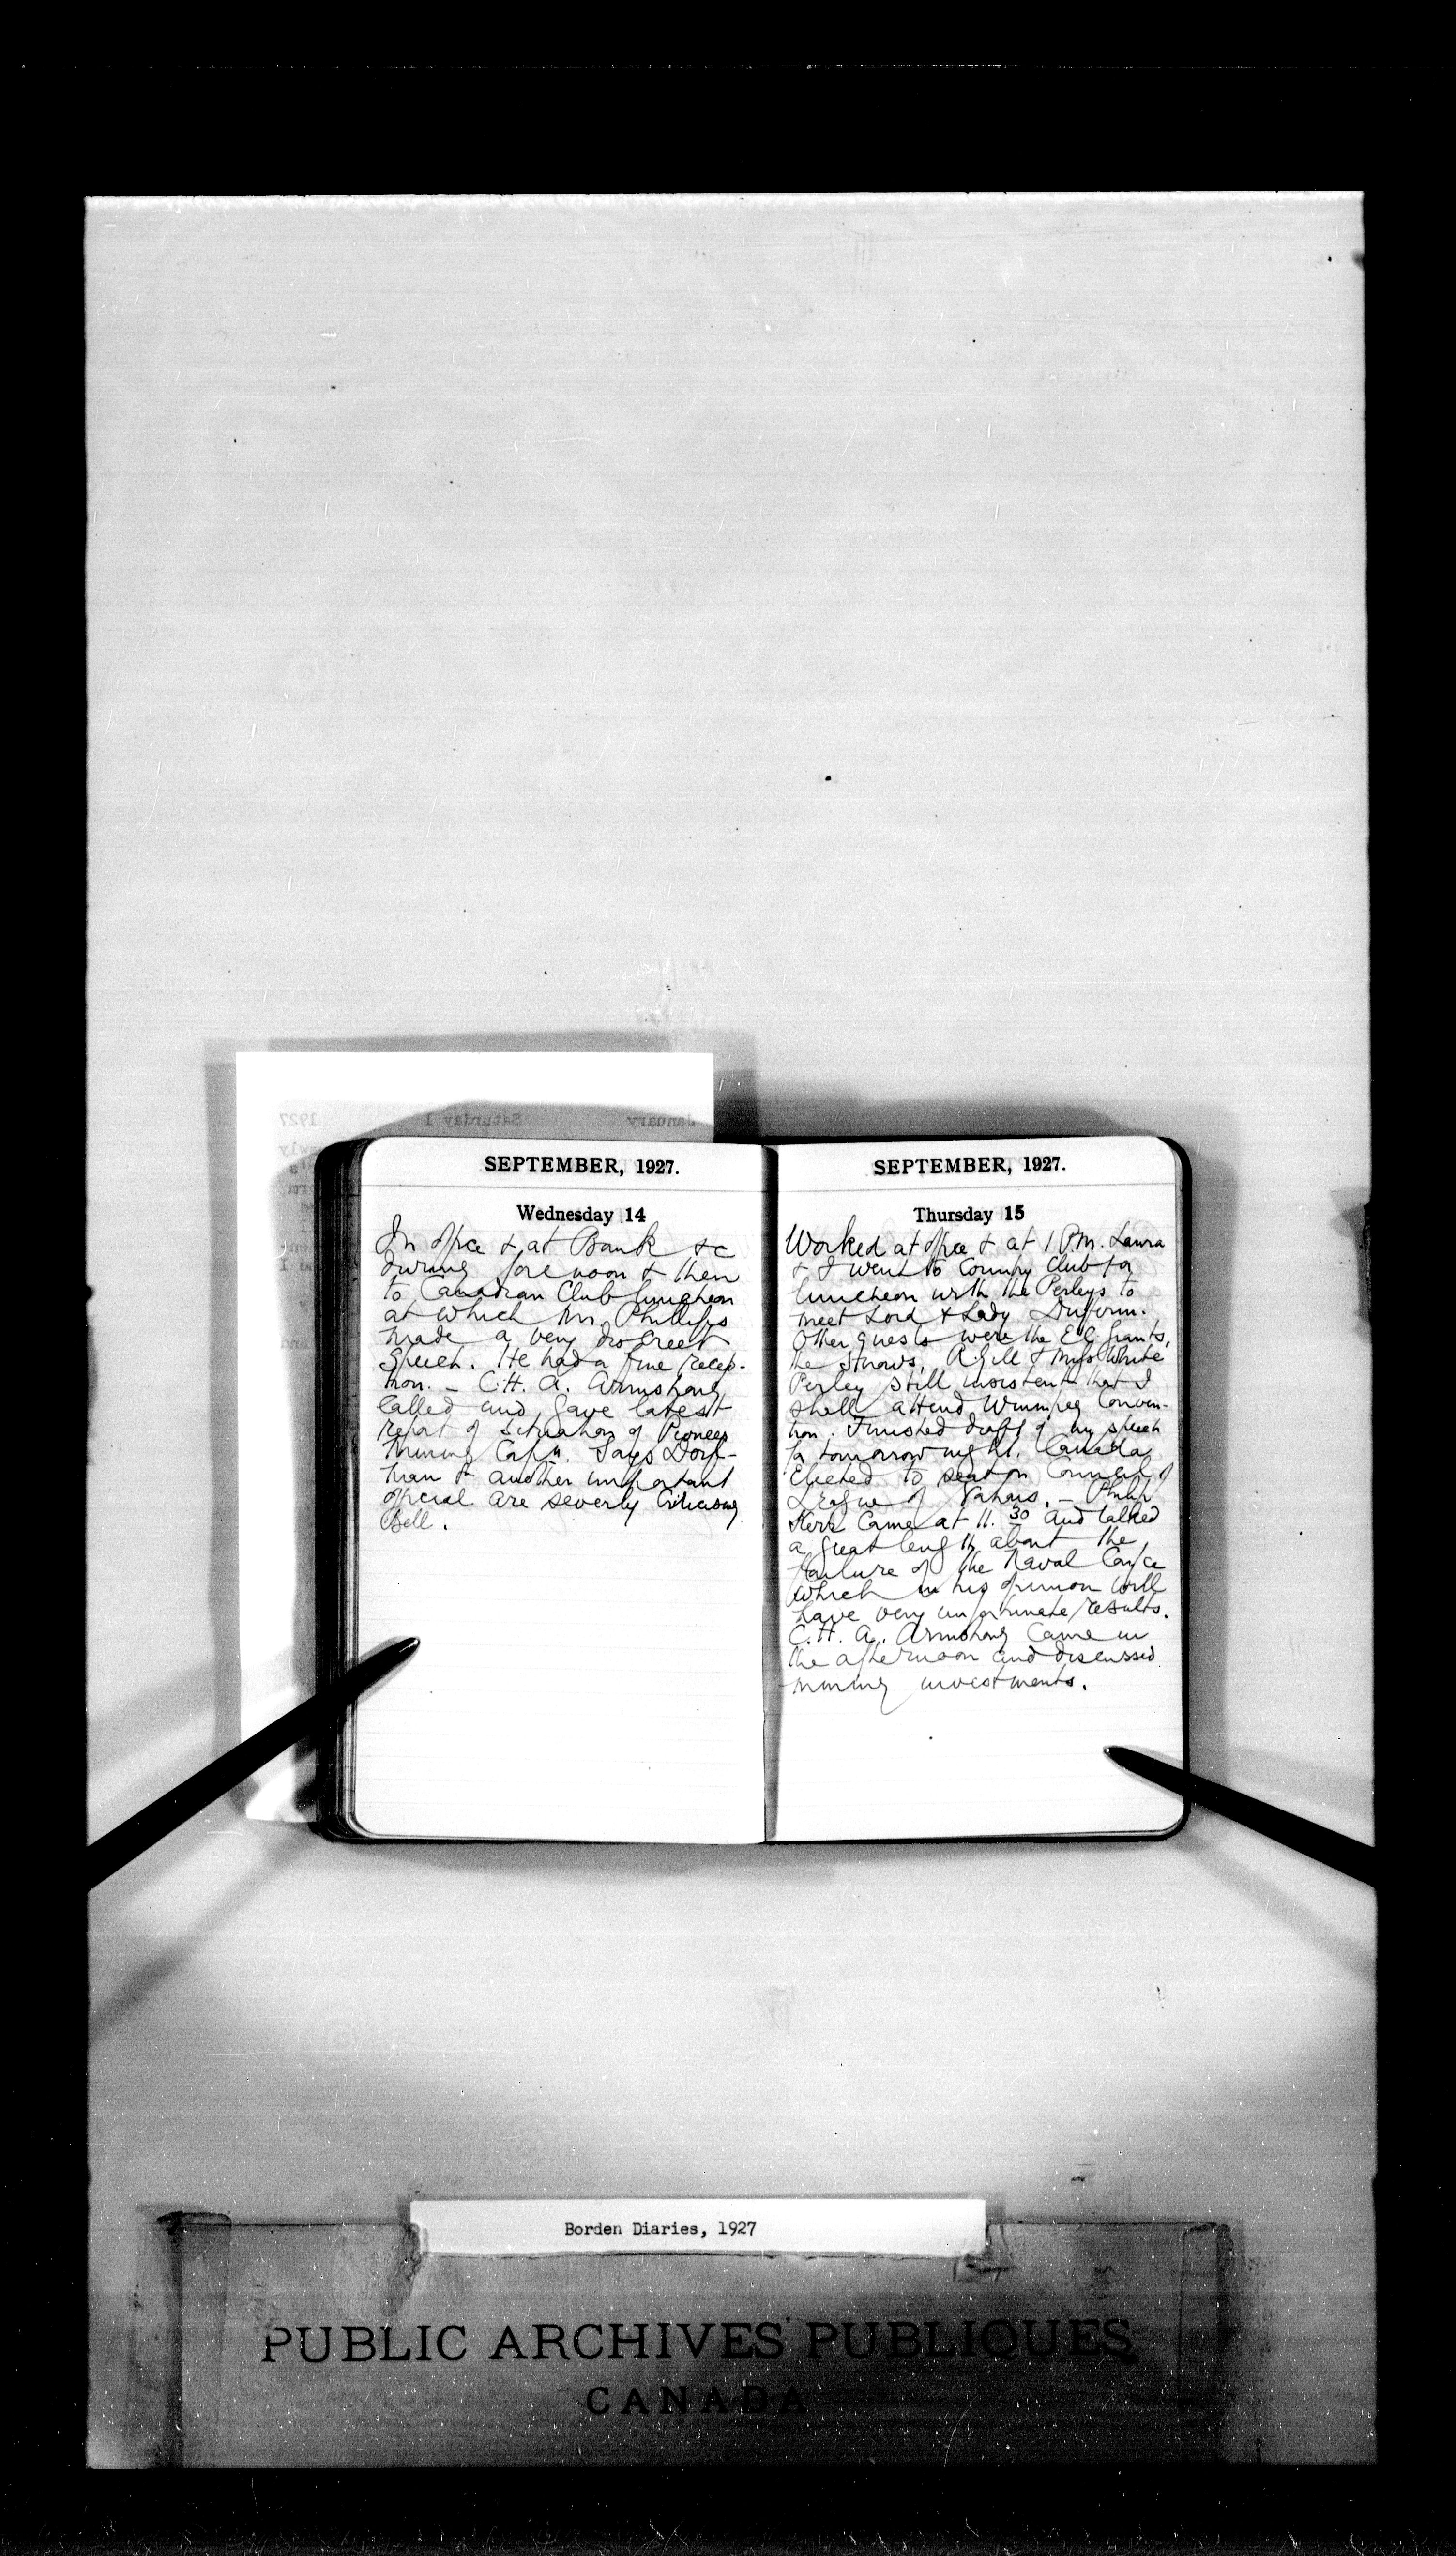 SEPTEMBER, 1927.
Wednesday 14
In office & at Bank &c
during forenoon & then
to Canadian Club luncheon
at which Mr. Phillips
made a very discreet
speech. He had a fine recep-
tion. – C.H.A. Armstrong
called and gave latest
report of situation of Pioneer
Mining Corpn. Says Dorf-
man & another important
official are severly criticising
Bell.
SEPTEMBER, 1927.
Thursday 15
Worked at office & at 1 P.M. Laura
& I went to Country Club for
luncheon with the Perleys to
meet Lord & Lady Dufferin.
Other guests were the E.C. Grants,
the Snows, R. Gill & Miss White
Perley still insistent that I
shall attend Winnipeg Conven-
tion. Finished draft of my speech
for tomorrow night. Canada
elected to seat on Council of
League of Nations. – Philip
Kerr came at 11.30 and talked
a great length about the
failure of the Naval Confce
which in his opinion will
have very unfortunate results.
C.H.A. Armstrong came in
the afternoon and discussed
mining investments.
January Saturday 1 1927
Borden Diaries, 1927
PUBLIC ARCHIVES PUBLIQUES
CANADA